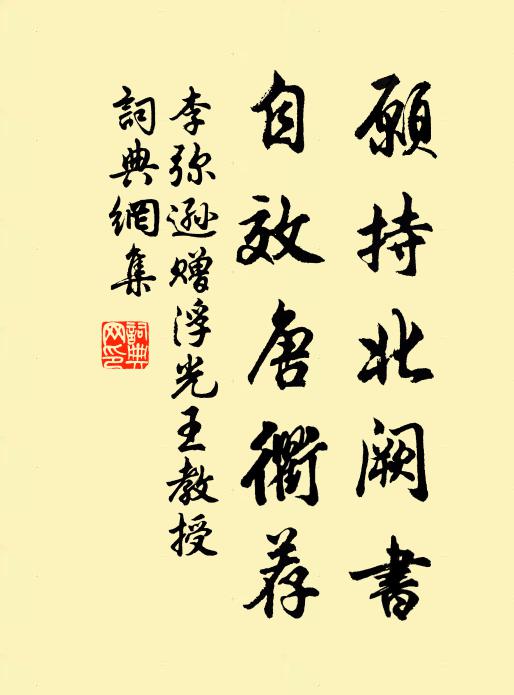 願持北阙書
自效唐衢荐
李弥遜贈浮光王教授
詞典網集
詞典網印